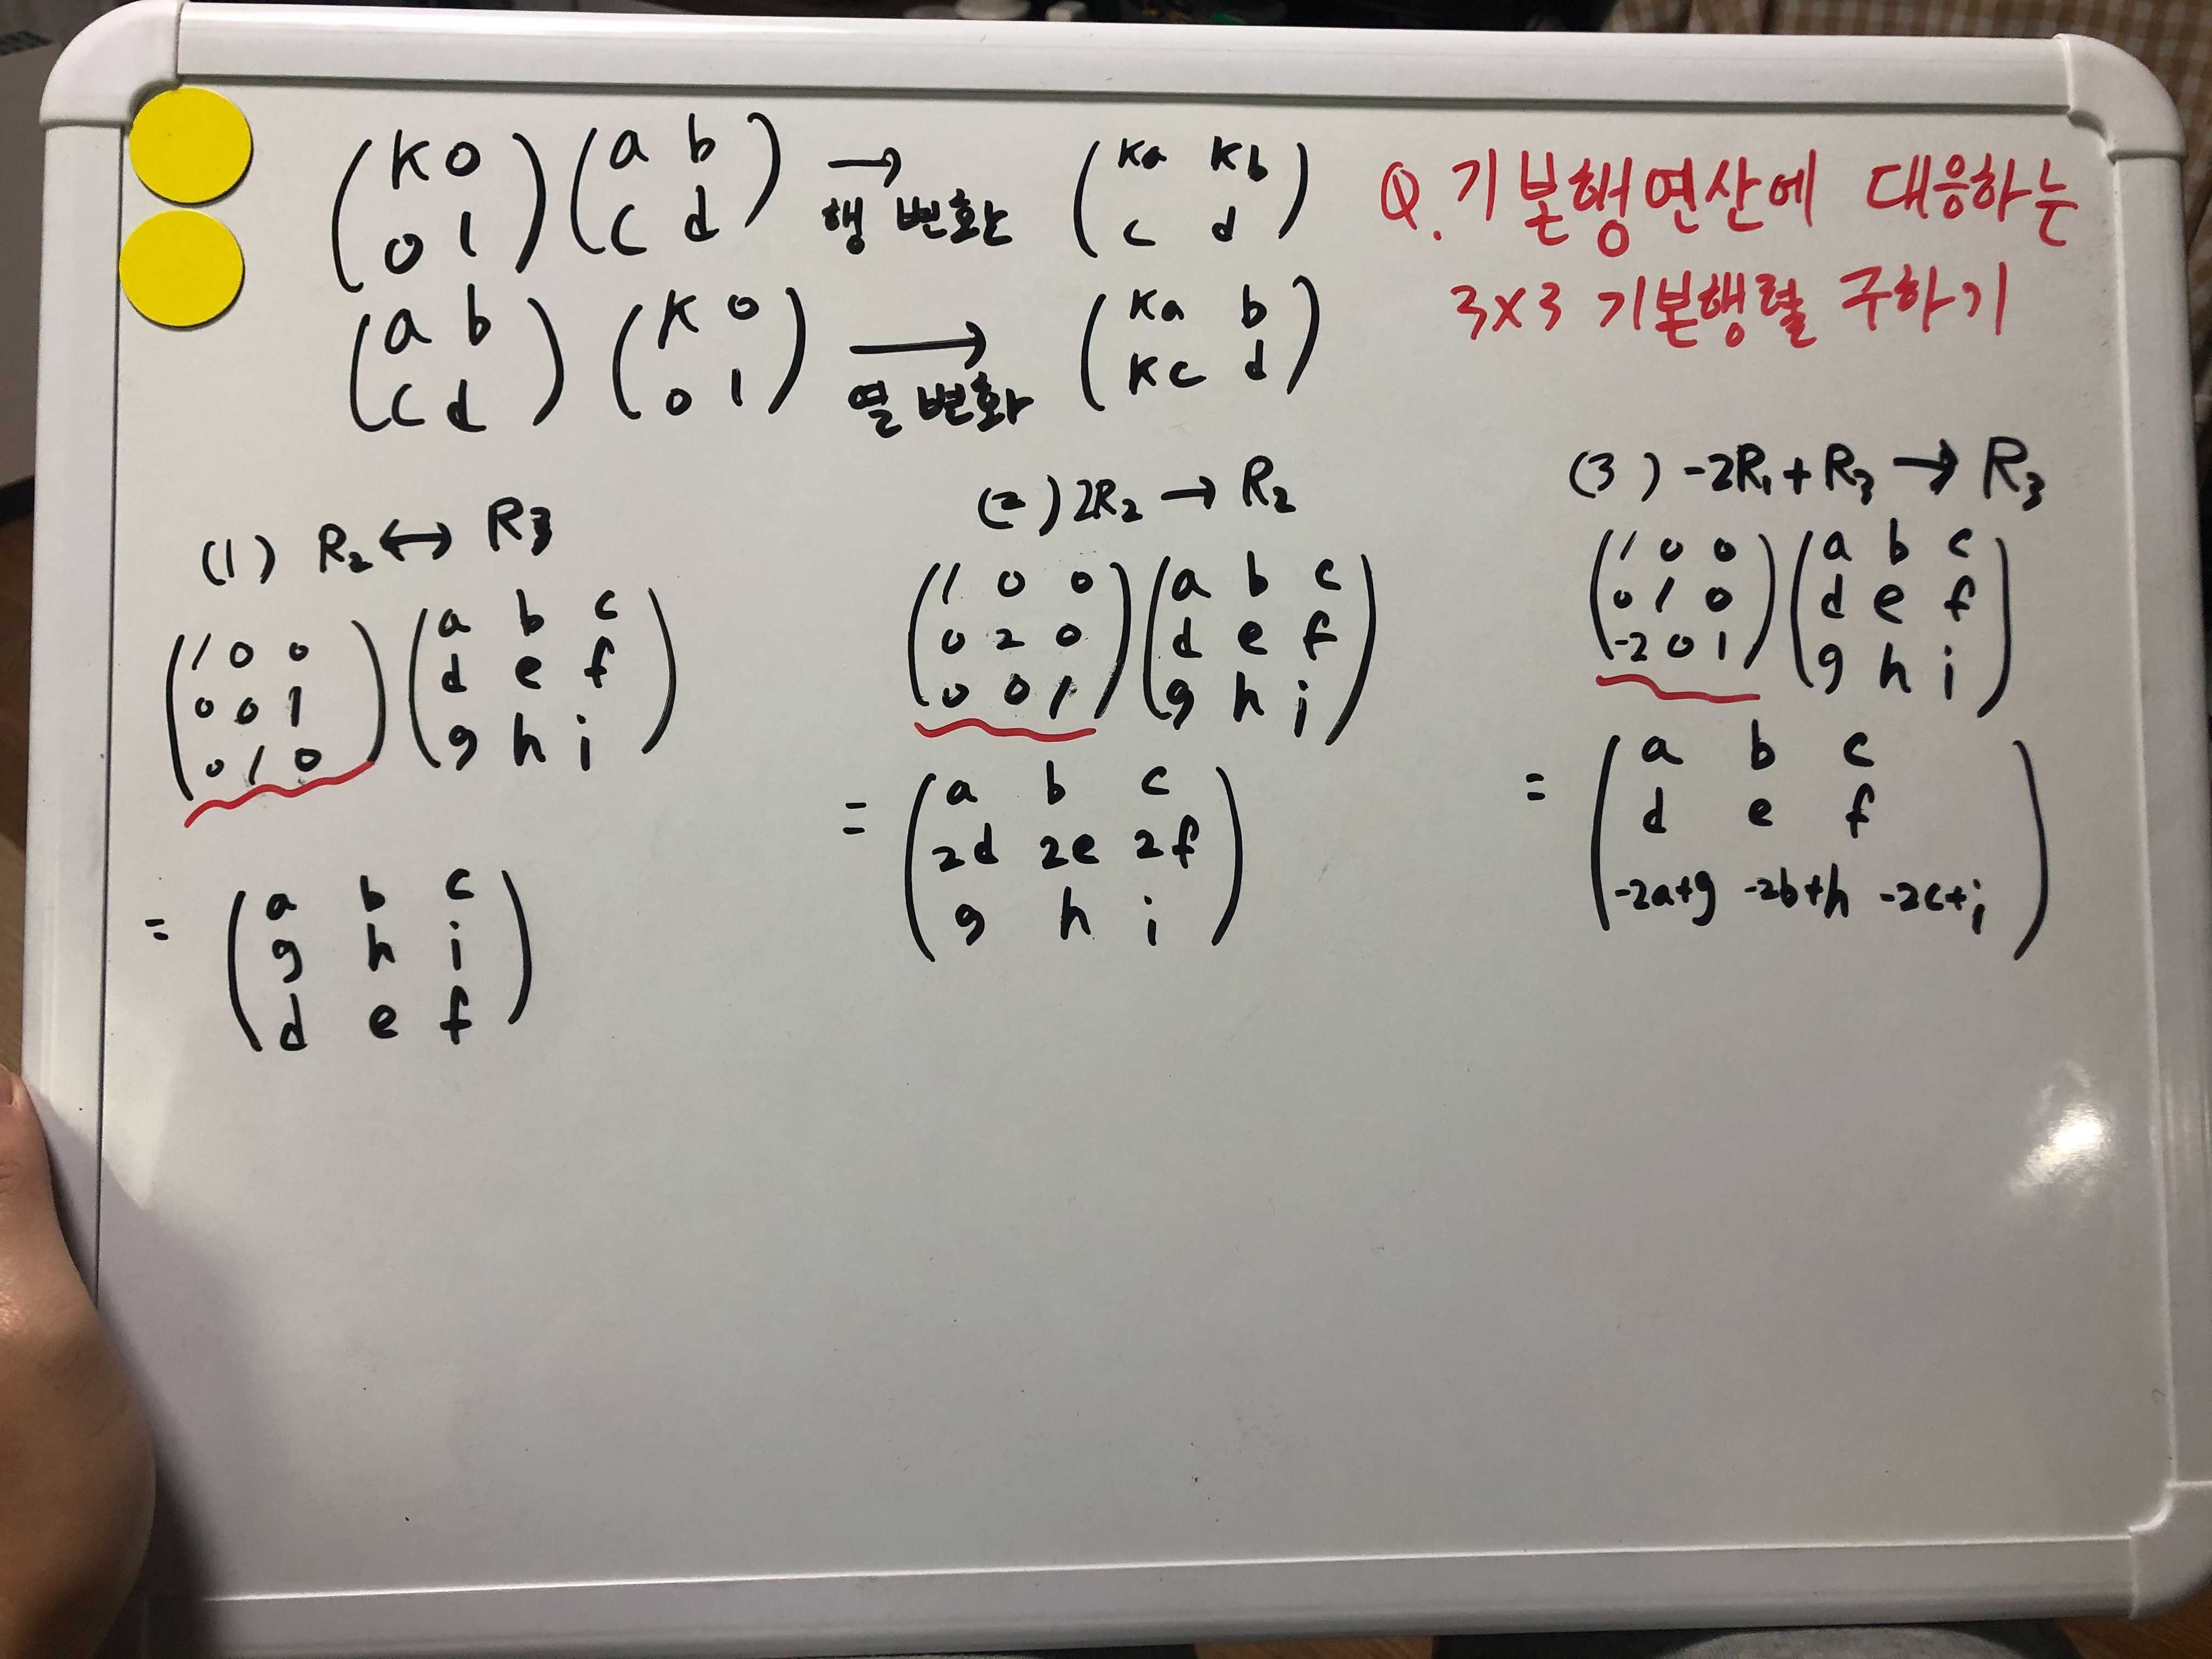 (K 0 / 0 1) (a b / c d) → 행 변환 (Ka Kb / c d)
(a b / c d) (K 0 / 0 1) → 열 변화 (Ka b / Kc d)
Q. 기본행연산에 대응하는
3x3 기본행렬 구하기
(1) R₂ ↔ R₃
(1 0 0 / 0 0 1 / 0 1 0) (a b c / d e f / g h i)
= (a b c / g h i / d e f)
(2) 2R₂ → R₂
(1 0 0 / 0 2 0 / 0 0 1) (a b c / d e f / g h i)
= (a b c / 2d 2e 2f / g h i)
(3) -2R₁ + R₃ → R₃
(1 0 0 / 0 1 0 / -2 0 1) (a b c / d e f / g h i)
= (a b c / d e f / -2a+g -2b+h -2c+i)